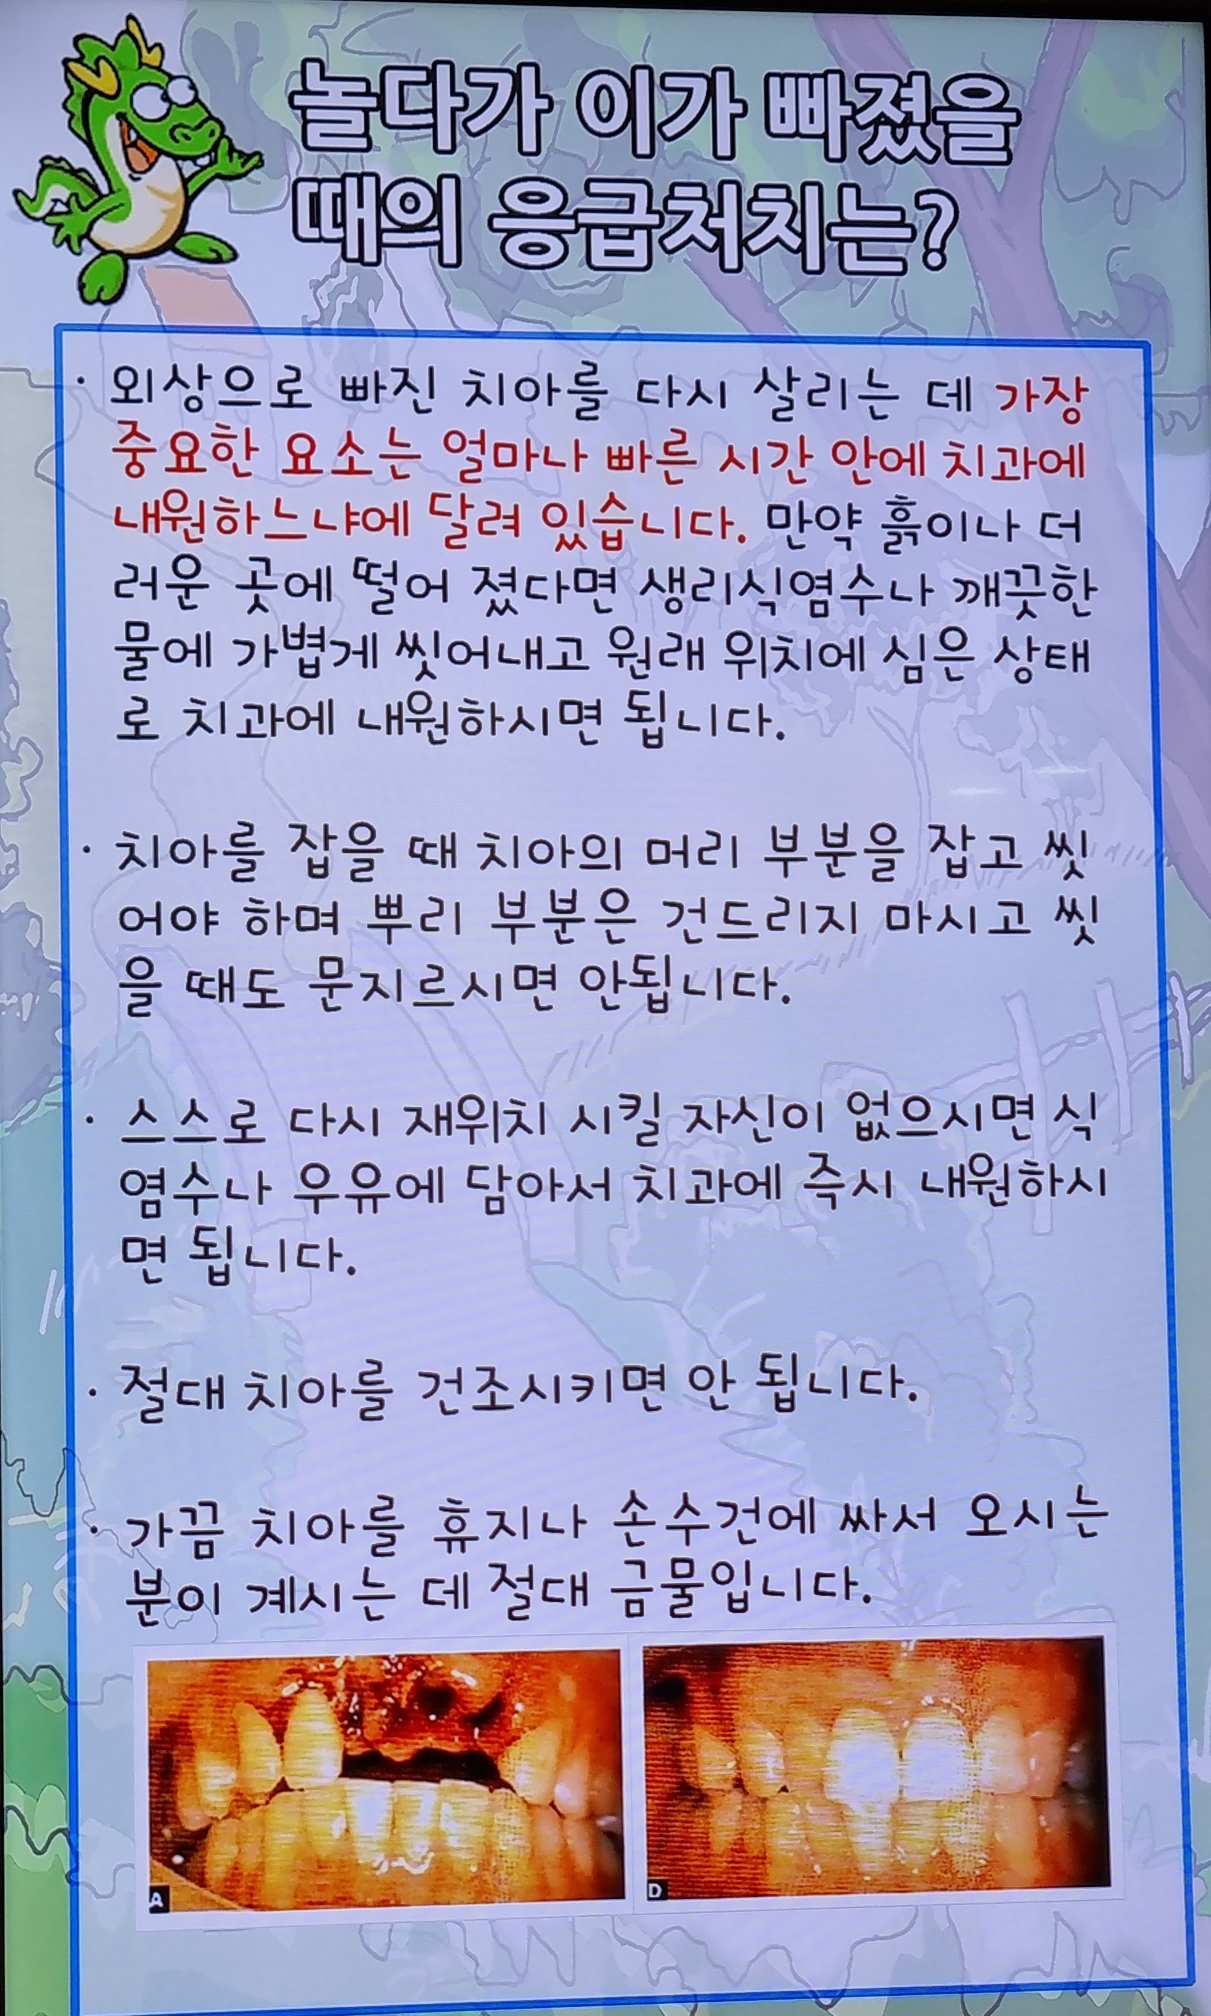 놀다가 이가 빠졌을
때의 응급처치는?
· 외상으로 빠진 치아를 다시 살리는 데 가장
중요한 요소는 얼마나 빠른 시간 안에 치과에
내원하느냐에 달려 있습니다. 만약 흙이나 더
러운 곳에 떨어 졌다면 생리식염수나 깨끗한
물에 가볍게 씻어내고 원래 위치에 심은 상태
로 치과에 내원하시면 됩니다.
· 치아를 잡을 때 치아의 머리 부분을 잡고 씻
어야 하며 뿌리 부분은 건드리지 마시고 씻
을 때도 문지르시면 안됩니다.
· 스스로 다시 재위치 시킬 자신이 없으시면 식
염수나 우유에 담아서 치과에 즉시 내원하시
면 됩니다.
· 절대 치아를 건조시키면 안 됩니다.
· 가끔 치아를 휴지나 손수건에 싸서 오시는
분이 계시는 데 절대 금물입니다.
A
D